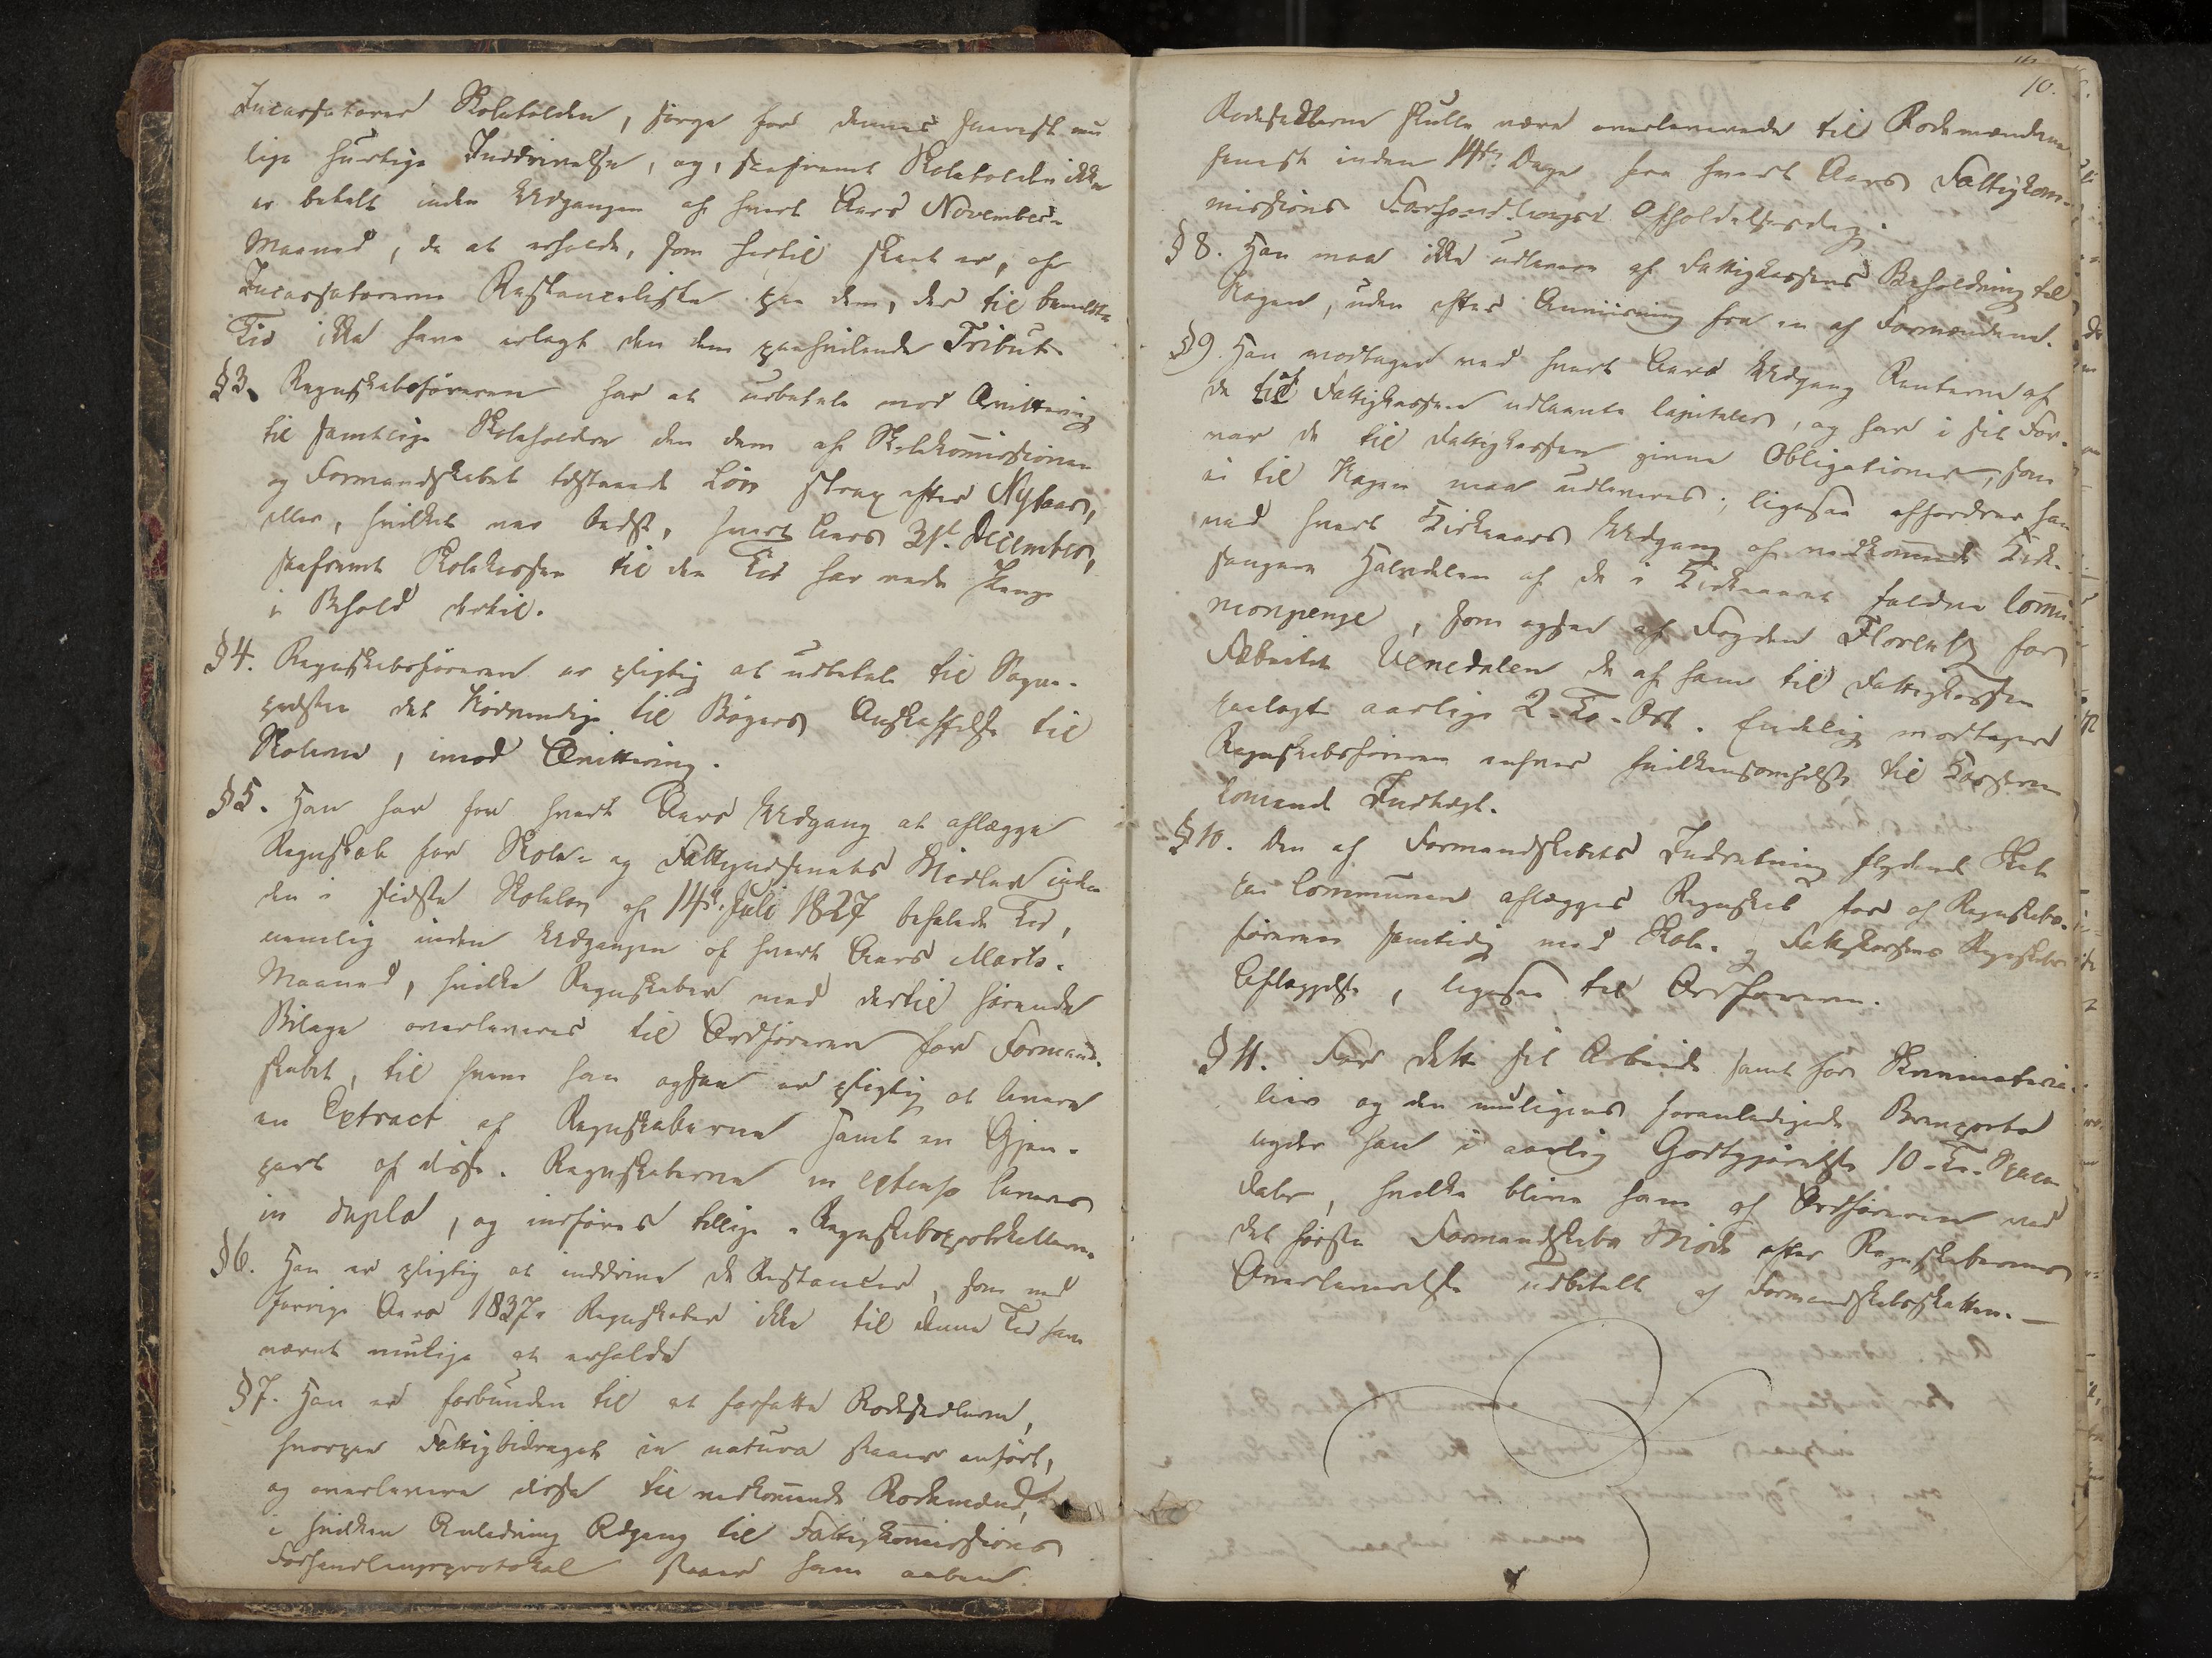 Incassatorer Skoletolden, sørge for dennes snarest mu
lige hurtige Inddrivelse, og, saafremt Skoletolden ikke
er betalt inden Udgangen af hvert Aars November-
Maaned, da at erholde, som hertil skeet er, af
Incassatorerne Restanceliste paa dem, der til bemeldte
Tid ikke have erlagt den dem paahvilende Tribut.
§3. Regnskabsføreren har at udbetale mod Qvittering
til samtlige Skoleholdere den dem af Skolekommissionen
og Formandskabet tilstaaede Løn strax efter Nytaar,
eller, hvilket var bedst, hvert Aars 31te December,
saafremt Skolekassen til den Tid har nødv Penge
i Behold dertil.
§4. Regnskabsføreren er pligtig at udbetale til Sogne-
præsten det Nødvendige til Bøgers Anskaffelse til
Skolerne, imod Qvittering.
§5. Han har for hvert Aars Udgang at aflægge
Regnskab for Skole- og Fattigvæsenets Midler inden
den i sidste Skolelov af 14de Juli 1827 befalede Tid,
nemlig inden Udgangen af hvert Aars Marts-
Maaned, hvilke Regnskaber med dertil hørende
Bilage overleveres til Ordføreren for Formand-
skabet, til hvem han ogsaa er pligtig at levere
en Extract af Regnskaberne samt en Gjen-
part af disse. Regnskaberne in extenso leveres
in duplo, og indføres tillige i Regnskabsprotokollerne
§6. Han er pligtig at inddrive de Restancer, som ved
forrige Aars 1837s Regnskaber ikke til denne Tid have
været mulige at erholde
§7. Han er forbunden til at forfatte Rodesedlerne,
hvorpaa Fattigbidraget in natura staaer anført,
og overlevere disse til vedkommende Rodemænd,
i hvilken Anledning Adgang til Fattigkommissions
Forhandlingsprotokol staaer ham aaben.
10.
Rodesedlerne skulle være overleverede til Rodemændene
senest inden 14ten Dage fra hvert Aars Fattigkom-
missions Forhandlings Afholdelsesdag.
§8. Han maa ikke udlevere af Fattigkassens Beholdning til
Nogen, uden efter Anviisning fra en af Formændene.
§9. Han modtager ved hvert Aars Udgang Renterne af
de til Fattigkassen udlaante Capitaler, og har i sit For-
var de til Fattigkassen givne Obligationer, som
ei til Nogen maa udleveres; ligesaa affordrer han
ved hvert Kirkeaars Udgang af vedkommende Kirke-
sangere Halvdelen af de i Kirkeaaret faldne Commu-
nionpenge, som ogsaa af Fogden Florentz for
Æbeitet Venedalen de af ham til Fattigkassen
paalagte aarlige 2-To-Ort. Endelig modtager
Regnskabsføreren enhver hvilkensomhelst til Kasserne
komende Indtægt.
§10. Den af Formandskabets Indretning flydende Skat
paa Communen aflægges Regnskab for af Regnskabs-
føreren samtidig med Skole- og Fattigkassens Regnskabers
Aflæggelse, ligesaa til Ordføreren.
§11. For dette sit Arbeide samt for Skrivmateria-
lier og den muligens foranledigede Brevporto
nyder han i aarlig Godtgjørelse 10-Ti-Specie
daler, hvilke blive ham af Ordføreren ved
det første Formandskabs Møde efter Regnskabernes
Overleverelse udbetalt af Formandskabsskatten.—